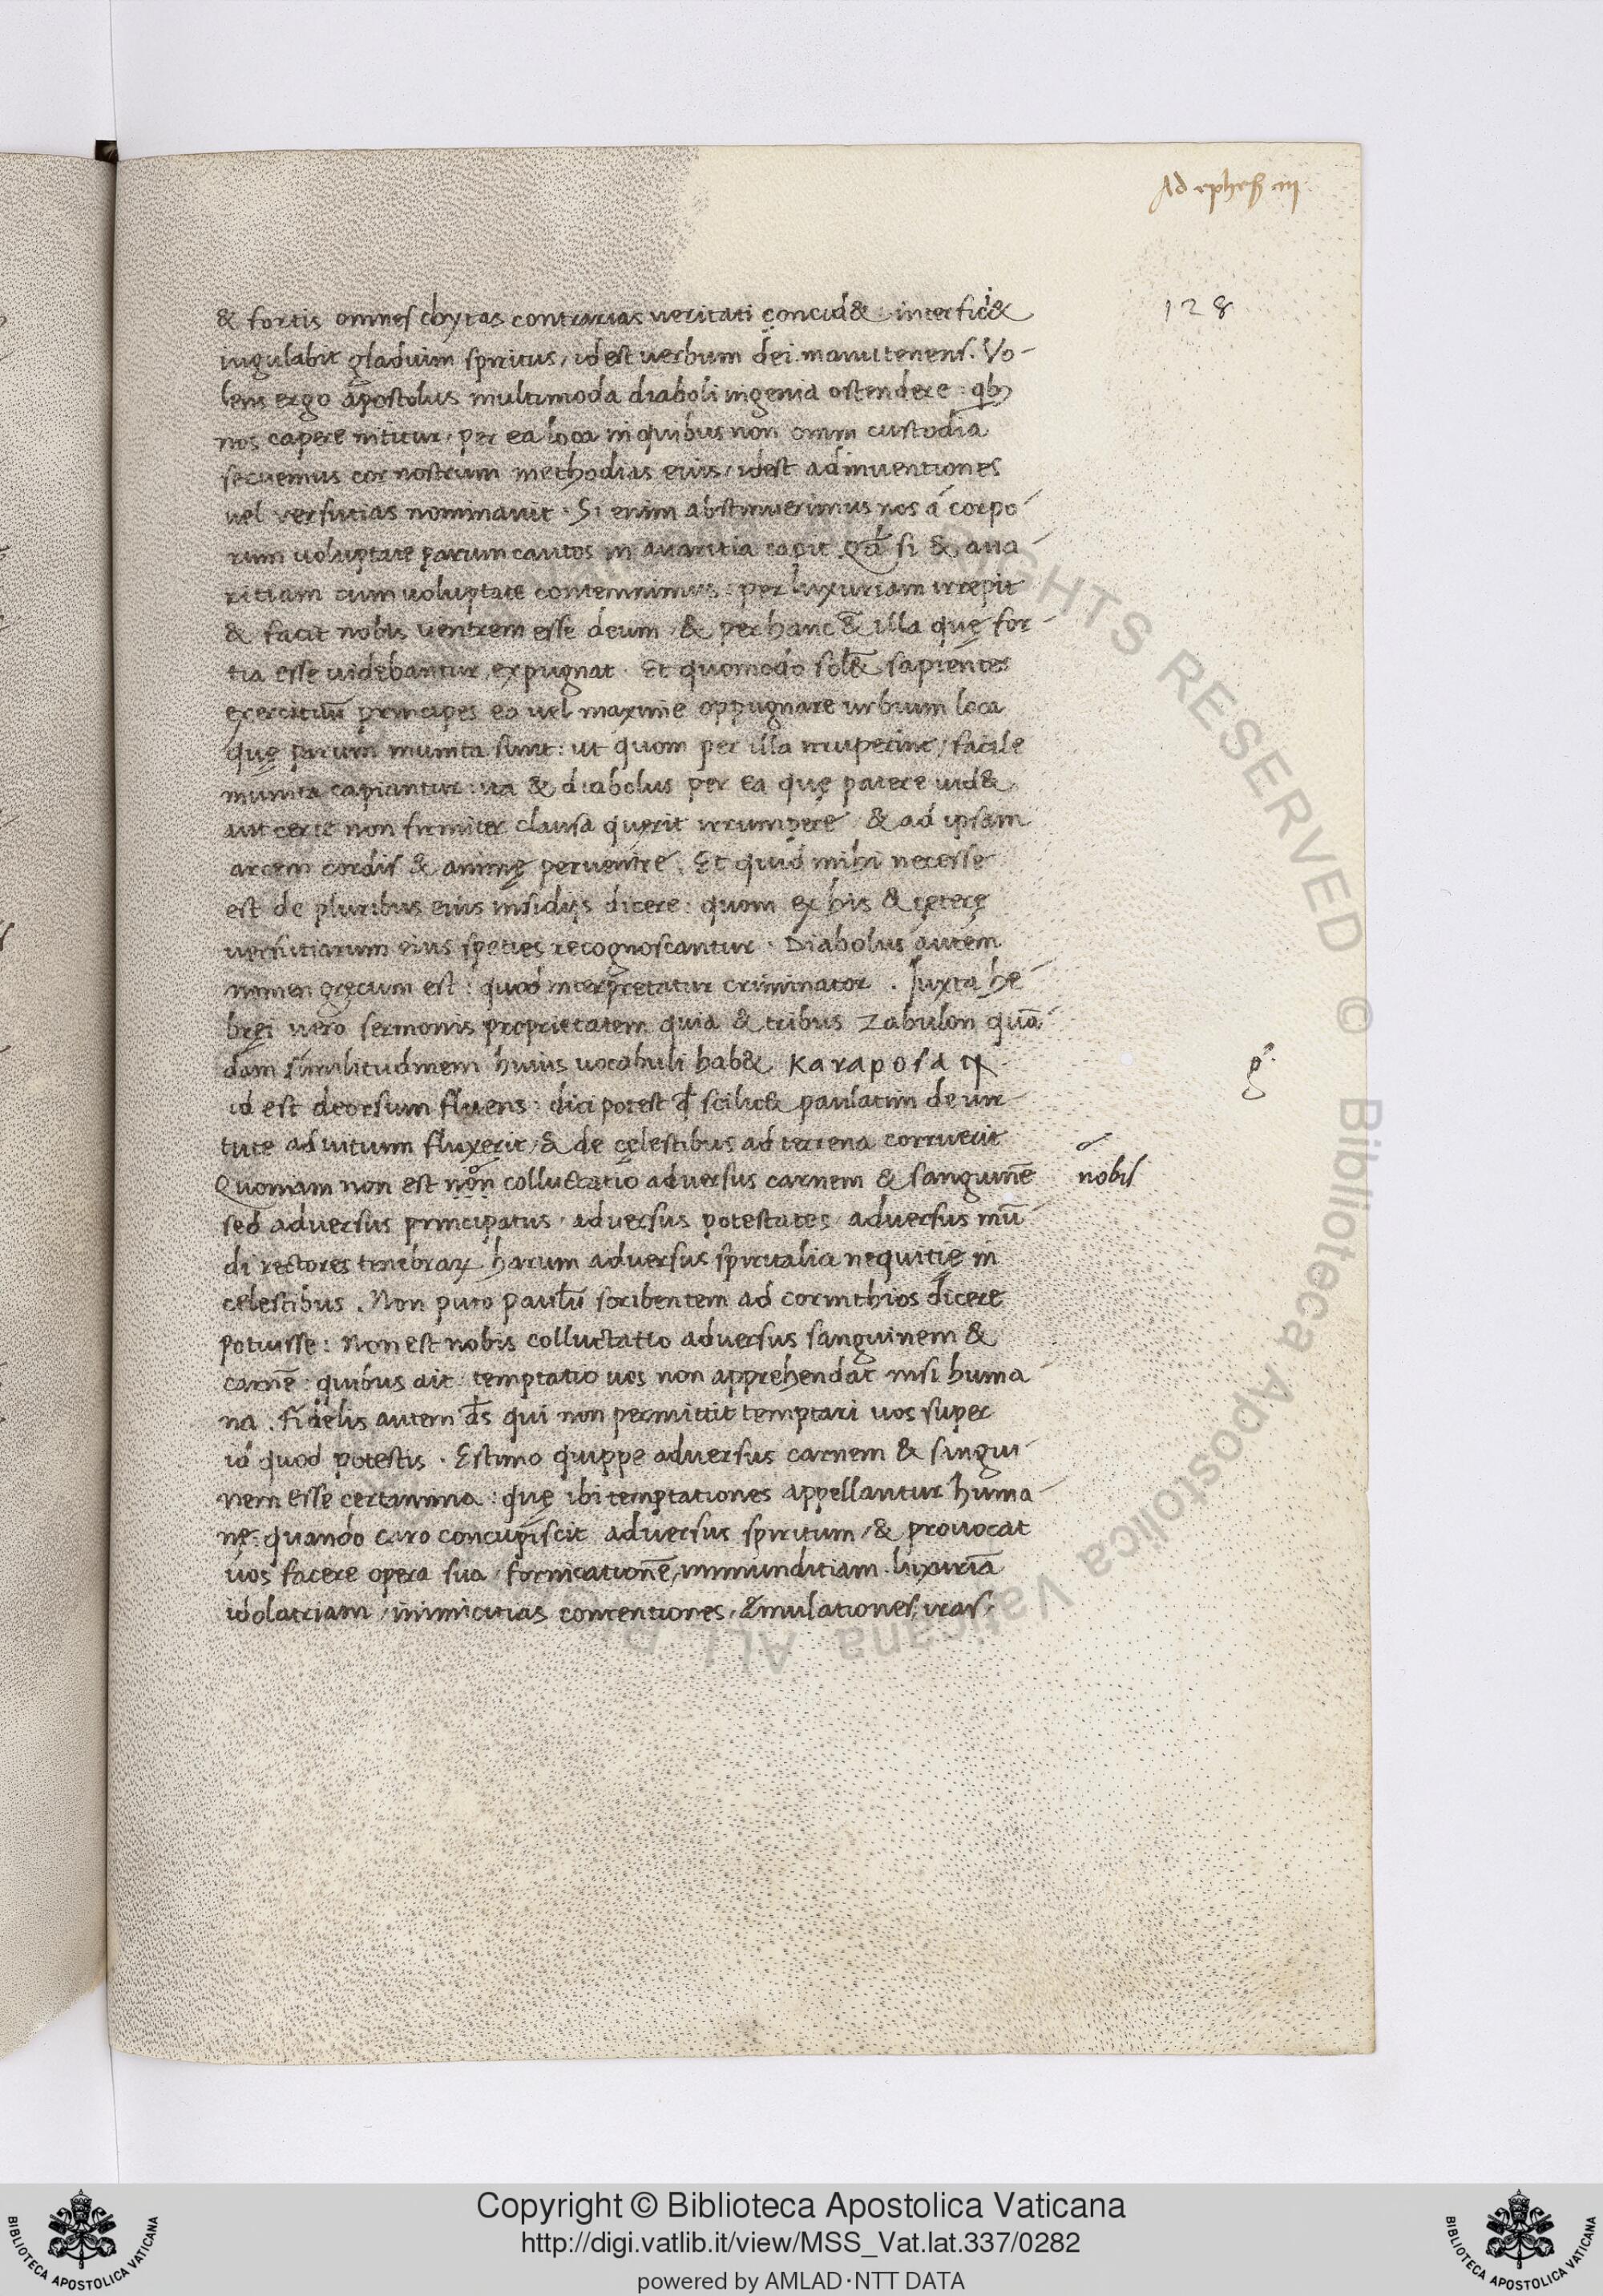 Ad ephes̄ iij
128
& fortis omnes choytas contrarias veritati concid& : interfic&
iugulabit gladium spiritus, id est verbum dei manu tenens. Vo-
lens ergo apostolus multimoda diaboli ingenia ostendere : qbꝫ
nos capere nititur, per ea loca in quibus non omni custodia
secuemus cor nostrum methodias eius, id est adinuentiones
uel versutias nominauit. Si enim abstinuerimus nos á corpo-
rum uoluptate parum cautos in auaritia capit. si & aua-
ritiam cum uoluptate contemnimus : per luxuriam irrepit
& facit nobis ventrem esse deum, & per hanc & illa quę for-
tia esse uidebantur, expugnat. Et quomodo sol& sapientes
exercituū principes ea uel maxime oppugnare urbium loca
quę parum munita sunt : ut quom per illa irruperint, facile
munita capiantur : ita & diabolus per ea quę patere uid&
aut certe non firmiter clausa quęrit irrumpere, & ad ipsam
arcem cordis & animę peruenire. Et quid mihi necesse
est de pluribus eius insidijs dicere : quom ex his & cęterę
uersutiarum eius speties recognoscantur. Diabolus autem
nomen gręcum est : quod interpretatur criminator. Juxta he-
brei uero sermonis proprietatem quia & tribus Zabulon quā-
dam similitudinem huius uocabuli hab&
id est deorsum fluens : dici potest scilic& paulatim de uir-
tute ad uitium fluxerit, & de cęlestibus ad terrena corruerit
Quoniam non est non colluctatio aduersus carnem & sanguinē
nobis
sed aduersus principatus, aduersus potestates, aduersus mū-
di rectores tenebraꝝ harum aduersus spiritalia nequitię in
celestibus. Non puto paulū scribentem ad corinthios dicere
potuisse : Non est nobis colluctatio aduersus sanguinem &
carnē : quibus ait : temptatio uos non apprehendat nisi huma-
na. Fidelis autem d̄s qui non permittit temptari uos super
id quod potestis. Estimo quippe aduersus carnem & sangui-
nem esse certamina : quę ibi temptationes appellantur huma-
nę : quando caro concupiscit aduersus spiritum, & prouocat
uos facere opera sua, fornicationē, immunditiam, luxuriā
idolatriam, inimicitias contentiones, ęmulationes, iras,
Copyright © Biblioteca Apostolica Vaticana
http://digi.vatlib.it/view/MSS_Vat.lat.337/0282
powered by AMLAD·NTT DATA